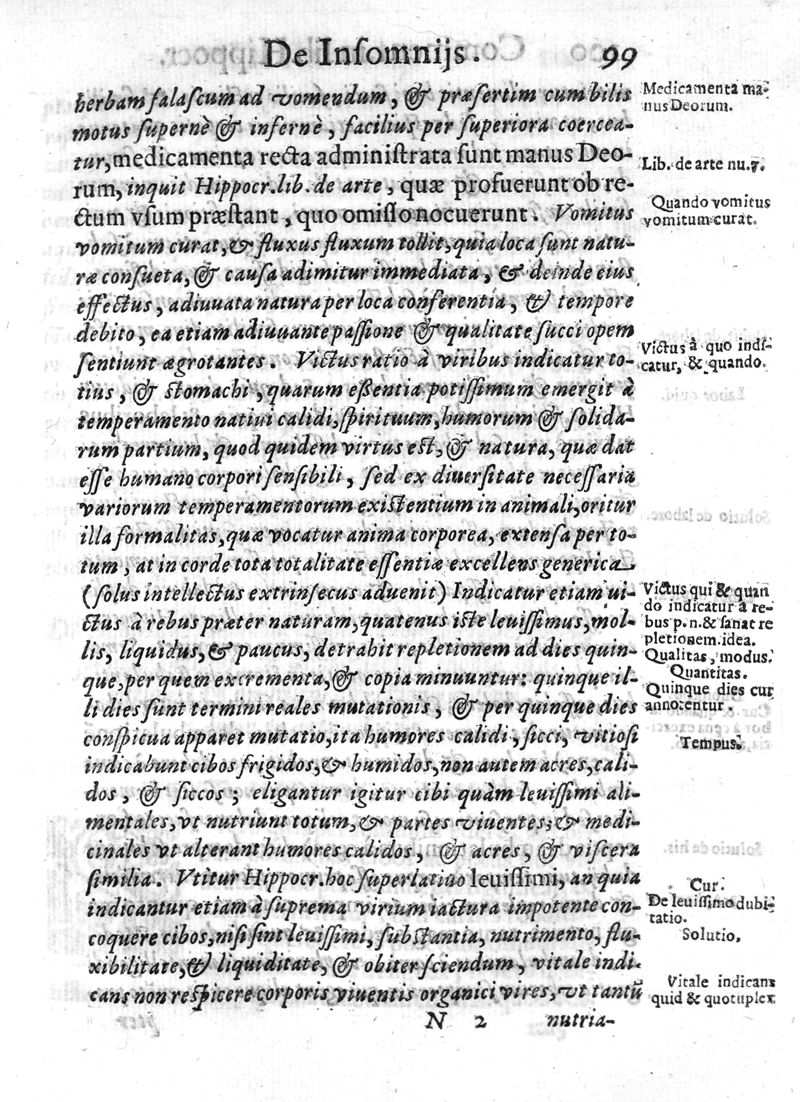 De Insomnijs. 99
herbam falascum ad vomendum, & præsertim cum bilis
motus supernè & infernè, facilius per superiora coercea-
tur, medicamenta recta administrata sunt manus Deo-
rum, inquit Hippocr. lib. de arte, quæ profuerunt ob re-
ctum vsum præstant, quo omisso nocuerunt. Vomitus
vomitum curat, & fluxus fluxum tollit, quia loca sunt natu-
ræ consueta, & causa adimitur immediata, & deinde eius
effectus, adiuuata natura per loca conferentia, & tempore
debito, ea etiam adiuuante passione & qualitate succi opem
sentiunt ægrotantes. Victus ratio à viribus indicatur to-
tius, & stomachi, quarum essentia potissimum emergit à
temperamento natiui calidi, spirituum, humorum & solida-
rum partium, quod quidem virtus est, & natura, quæ dat
esse humano corpori sensibili, sed ex diuersitate necessaria
variorum temperamentorum existentium in animali, oritur
illa formalitas, quæ vocatur anima corporea, extensa per to-
tum, at in corde tota totalitate essentiæ excellens generica
(solus intellectus extrinsecus aduenit) Indicatur etiam ui-
ctus à rebus præter naturam, quatenus iste leuissimus, mol-
lis, liquidus, & paucus, detrahit repletionem ad dies quin-
que, per quem excrementa, & copia minuuntur: quinque il-
li dies sunt termini reales mutationis, & per quinque dies
conspicua apparet mutatio, ita humores calidi, sicci, vitiosi
indicabunt cibos frigidos, & humidos, non autem acres, cali-
dos, & siccos; eligantur igitur cibi quàm leuissimi ali-
mentales, vt nutriunt totum, & partes viuentes; & medi-
cinales vt alterant humores calidos, & acres, & viscera
similia. Vtitur Hippocr. hoc superlatiuo leuissimi, an quia
indicantur etiam à suprema virium iactura impotente con-
coquere cibos, nisi sint leuissimi, substantia, nutrimento, flu-
xibilitate, & liquiditate, & obiter sciendum, vitale indi-
cans non respicere corporis viuentis organici vires, vt tantũ
N 2 nutria-
Medicamenta ma-
nus Deorum.
Lib. de arte nu. 7.
Quando vomitus
vomitum curat.
Victus à quo indi-
catur, & quando.
Victus qui & quan
do indicatur à re-
bus p. n. & sanat re
pletionem. idea.
Qualitas, modus.
Quantitas.
Quinque dies cur
annotentur.
Tempus.
Cur.
De leuissimo dubi-
tatio.
Solutio.
Vitale indicans
quid & quotuplex